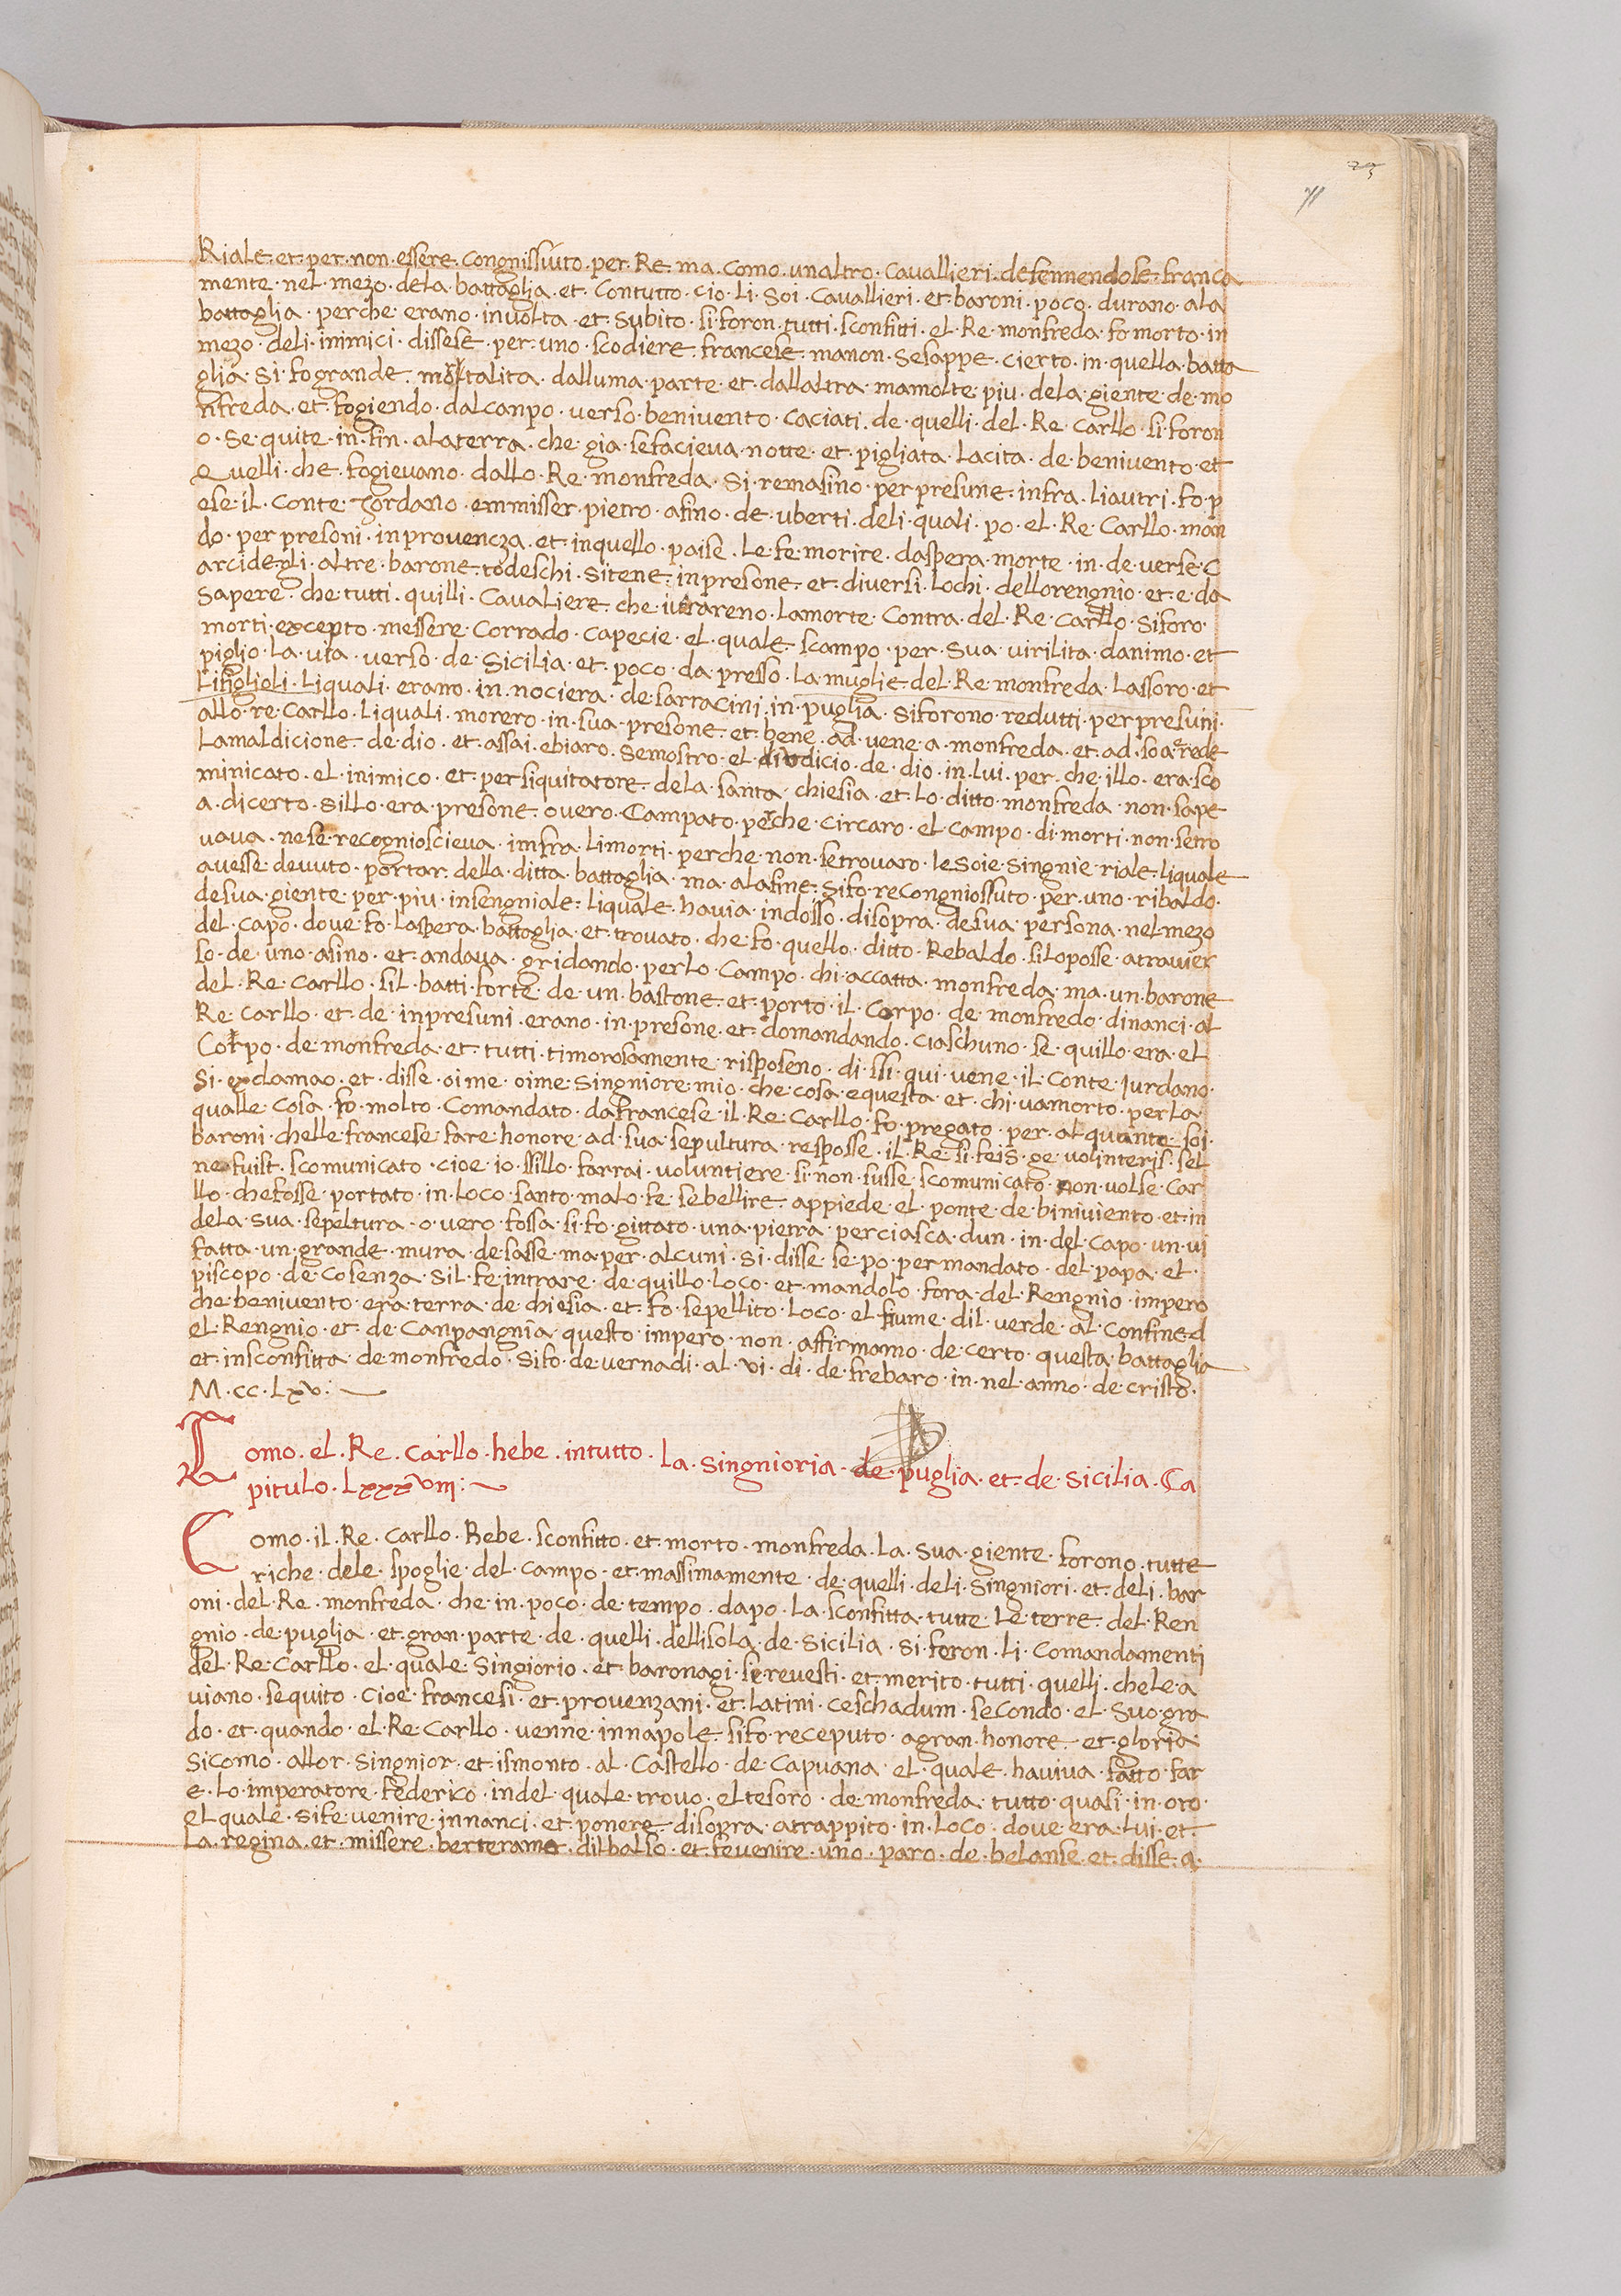 71
Riale · et · per · non · essere · congnissuito · per · Re · ma · como · unaltro · cavallieri · defennendose · franca
mente · nel · mezo · dela · battaglia · et · contutto · cio · li · soi · cavallieri · et · baroni · poco · durano · ala
battaglia · perche · erano · involta · et · subito · si · foron · tutti · sconfitti · el · Re · monfreda · fo morto · in
mezo · deli · inimici · dissese · per · uno · scodiere · francese · manon · sesappe · cierto · in · quella · batta
glia · si · fogrande · mortalita · dalluma · parte · et · dallaltra · mamolte · piu · dela · giente · de · mo
nfreda · et · fogiendo · dalcanpo · verso · benivento · caciati · de · quelli · del · Re · carllo · si foron
o · se quite · in · fin · alaterra · che · gia · sefacieva · notte · et · pigliata · lacita · de · benivento · et
Quelli · che · fogievano · dallo · Re · monfreda · si · remasino · per presune · infra · liautri · fo · p
ese · il · conte · Jordano · emmisser · pietro · asino · de · uberti · deli · quali · po · el · Re · carllo · man
do · per presoni · inprovencza · et · inquello · paise · le · fe · morire · daspera · morte · in · de verse · c
arcide · gli · altre · barone · todeschi · sitene · inpresone · et · diversi · lochi · dellorengnio · et · e · da
sapere · che · tutti · quilli · cavaliere · che · iurareno · lamorte · contra · del · Re · carllo · siforo ·
morti · excepto · messere · corrado · capecie · el · quale · scampo · per · sua · virilita · danimo · et
piglio · la · via · verso · de · sicilia · et · poco · da · presso · la · muglie · del · Re · monfreda · lassoro · et
lifiglioli · liquali · erano · in · nociera · de · sarracini · in · puglia · siforono · redutti · per presuni ·
allo · re · carllo · liquali · morero · in · sua · presone · et · bene · ad · vene · a · monfreda · et · ad · soa erede
lamaldicione · de · dio · et · assai · ebiaro · semostro · el · iudicio · de · dio · in · lui · per · che · illo · era · sco
minicato · el · inimico · et · persiquitatore · dela · santa · chiesia · et · lo · ditto · monfreda · non · sape
a · dicerto · sillo · era · presone · overo · campato · perche · circaro · el · campo · di · morti · non · setro
vava · nese · recognioscieva · imfra · limorti · perche · non · setrovaro · lesoie · singnie · riale · liquale
avesse · devuto · portar · della · ditta · battaglia · ma · alafine · sifo · recongniossuto · per · uno · ribaldo ·
desua · giente · per · piu · insengniale · liquale · havia · indosso · disopra · desua · persona · nel · mezo
del · capo · dove · fo · laspera · battaglia · et · trovato · che · fo · quello · ditto · Rebaldo · siloposse · atravier
so · de · uno · asino · et · andava · gridando · perlo · campo · chi · accatta · monfreda · ma · un · barone
del · Re · carllo · sil · batti · forte · de · un · bastone · et · porto · il · corpo · de · monfredo · dinanci · al
Re · carllo · et · de · inpresuni · erano · in · presone · et · domandando · ciaschuno · se · quillo · era · el
corpo · de · monfreda · et · tutti · timorosamente · risposeno · di · ssi · qui · vene · il · conte · jurdano ·
si · exclamao · et · disse · oi me · oime · singniore · mio · che · cosa · equesta · et · chi · vamorto · perla
qualle · cosa · fo · molto · comandato · dafrancese · il · Re · carllo · fo · pregato · per · al quante · soi ·
baroni · chelle · francese · fare · honore · ad · sua · sepultura · resposse · il · Re · si · feis · ge · volinteris · sel
ne fuist · scomunicato · cioe · io · ssillo · farrai · voluntiere · si · non · fusse · scomunicato · non · volse · car
llo · chefosse · portato · in · loco · santo · malo · fe · sebellire · appiede · el · ponte · de · biniviento · et · in
dela · sua · sepeltura · o · vero · fossa · si · fo · gittato · una · pietra · perciasca · dun · in · del · capo · un · vi
fatta · un · grande · mura · de · sasse · ma · per · alcuni · si · disse · se · po · per mandato · del · papa · el ·
piscopo · de · cosenza · sil · fe · intrare · de · quillo · loco · et · mandolo · fora · del · Rengnio · impero
che · benivento · era · terra · de · chiesia · et · fo · sepellito · loco · el · fiume · dil · verde · al · confine · d
el · Rengnio · et · de · canpangnia · questo · impero · non · affirmamo · de · certo · questa · battaglia
et · insconfitta · de · monfredo · sifo · de · vernadi · al · vi · di · de · frebaro · in · nel · anno · de · cristo ·
M · cc · Lxv :
Como · el · Re · carllo · hebe · intutto · la · singnioria · de · puglia · et · de · sicilia · Ca
pitulo · Lxxxviii :
Como · il · Re · carllo · Hebe · sconfitto · et · morto · monfreda · la · sua · giente · forono · tutte
riche · dele · spoglie · del · campo · et · massimamente · de · quelli · deli · singniori · et · deli · bar
oni · del · Re · monfreda · che · in · poco · de · tempo · dapo · la · sconfitta · tutte · le · terre · del · Ren
gnio · de · puglia · et · gran · parte · de · quelli · dellisola · de · sicilia · si · foron · li · comandamenti
del · Re · carllo · el · quale · singiorio · et · baronagi · si revesti · et · merito · tutti · quelli · chele · a
viano · sequito · cioe · francesi · et · provenzani · et · latini · ceschadum · secondo · el · suo · gra
do · et · quando · el · Re · carllo · venne · innapole · sifo · receputo · agran · honore · et · gloria
sicomo · allor · singnior · et · ismonto · al · castello · de · capuana · el · quale · haviva · fatto · far
e · lo · imperatore · federico · indel · quale · trovo · eltesoro · de · monfreda · tutto · quasi · in · oro ·
el quale · sife · venire · innanci · et · ponere · disopra · atrappito · in · loco · dove · era · lui · et ·
la · regina · et · missere · berteramo · dilbalso · et · fevenire · uno · paro · de · belanse · et · disse · a ·